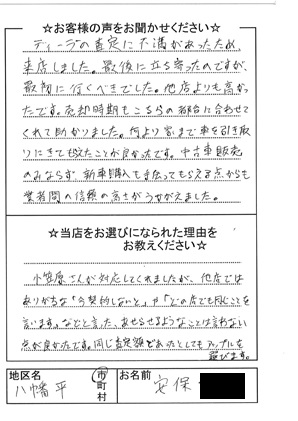 ☆お客様の声をお聞かせください☆
ディーラの査定に不満があったため、
来店しました。最後に立ち寄ったのですが、
最初に行くべきでした。他店よりも高かっ
たです。売却時期もこちらの都合に合わせて
くれて助かりました。何より家まで車を引き取
りにきてもらえたことが良かったです。中古車販売
のみならず、新車購入も手伝ってもらえる点からも
業者間の信頼の高さがうかがえました。
☆当店をお選びになられた理由を
お教えください☆
小笠原さんが対応してくれましたが、他店では
ありがちな「今契約しないと」や「どの店でも同じことを
言います。」などと言った、あせらせるようなことは言わない
点が良かったです。同じ査定額であったとしてもアップルを
選びます。
地区名
八幡平
市
町
村
お名前
安保